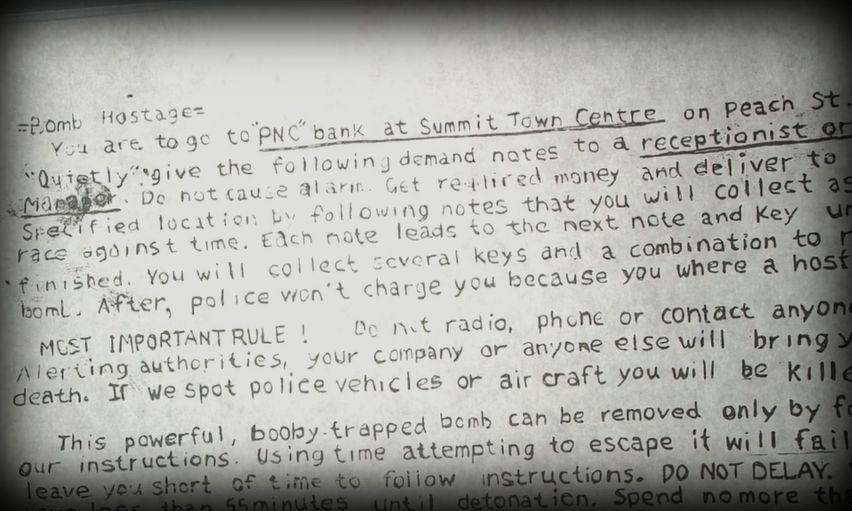 =Bomb Hostage=
You are to go to "PNC" bank at Summit Town Centre on Peach St.
"Quietly" give the following demand notes to a receptionist or
Manager. Do not cause alarm. Get required money and deliver to
Specified location by following notes that you will collect as
race against time. Each note leads to the next note and key
finished. You will collect several keys and a combination to
bomb. After, police won't charge you because you where a
MOST IMPORTANT RULE ! Do not radio, phone or contact
Alerting authorities, your company or anyone else will bring
death. If we spot police vehicles or air craft you will be
This powerful, booby-trapped bomb can be removed only by
our instructions. Using time attempting to escape it will fail
leave you short of time to follow instructions. DO NOT DELAY.
less than 55 minutes until detonation. Spend no more